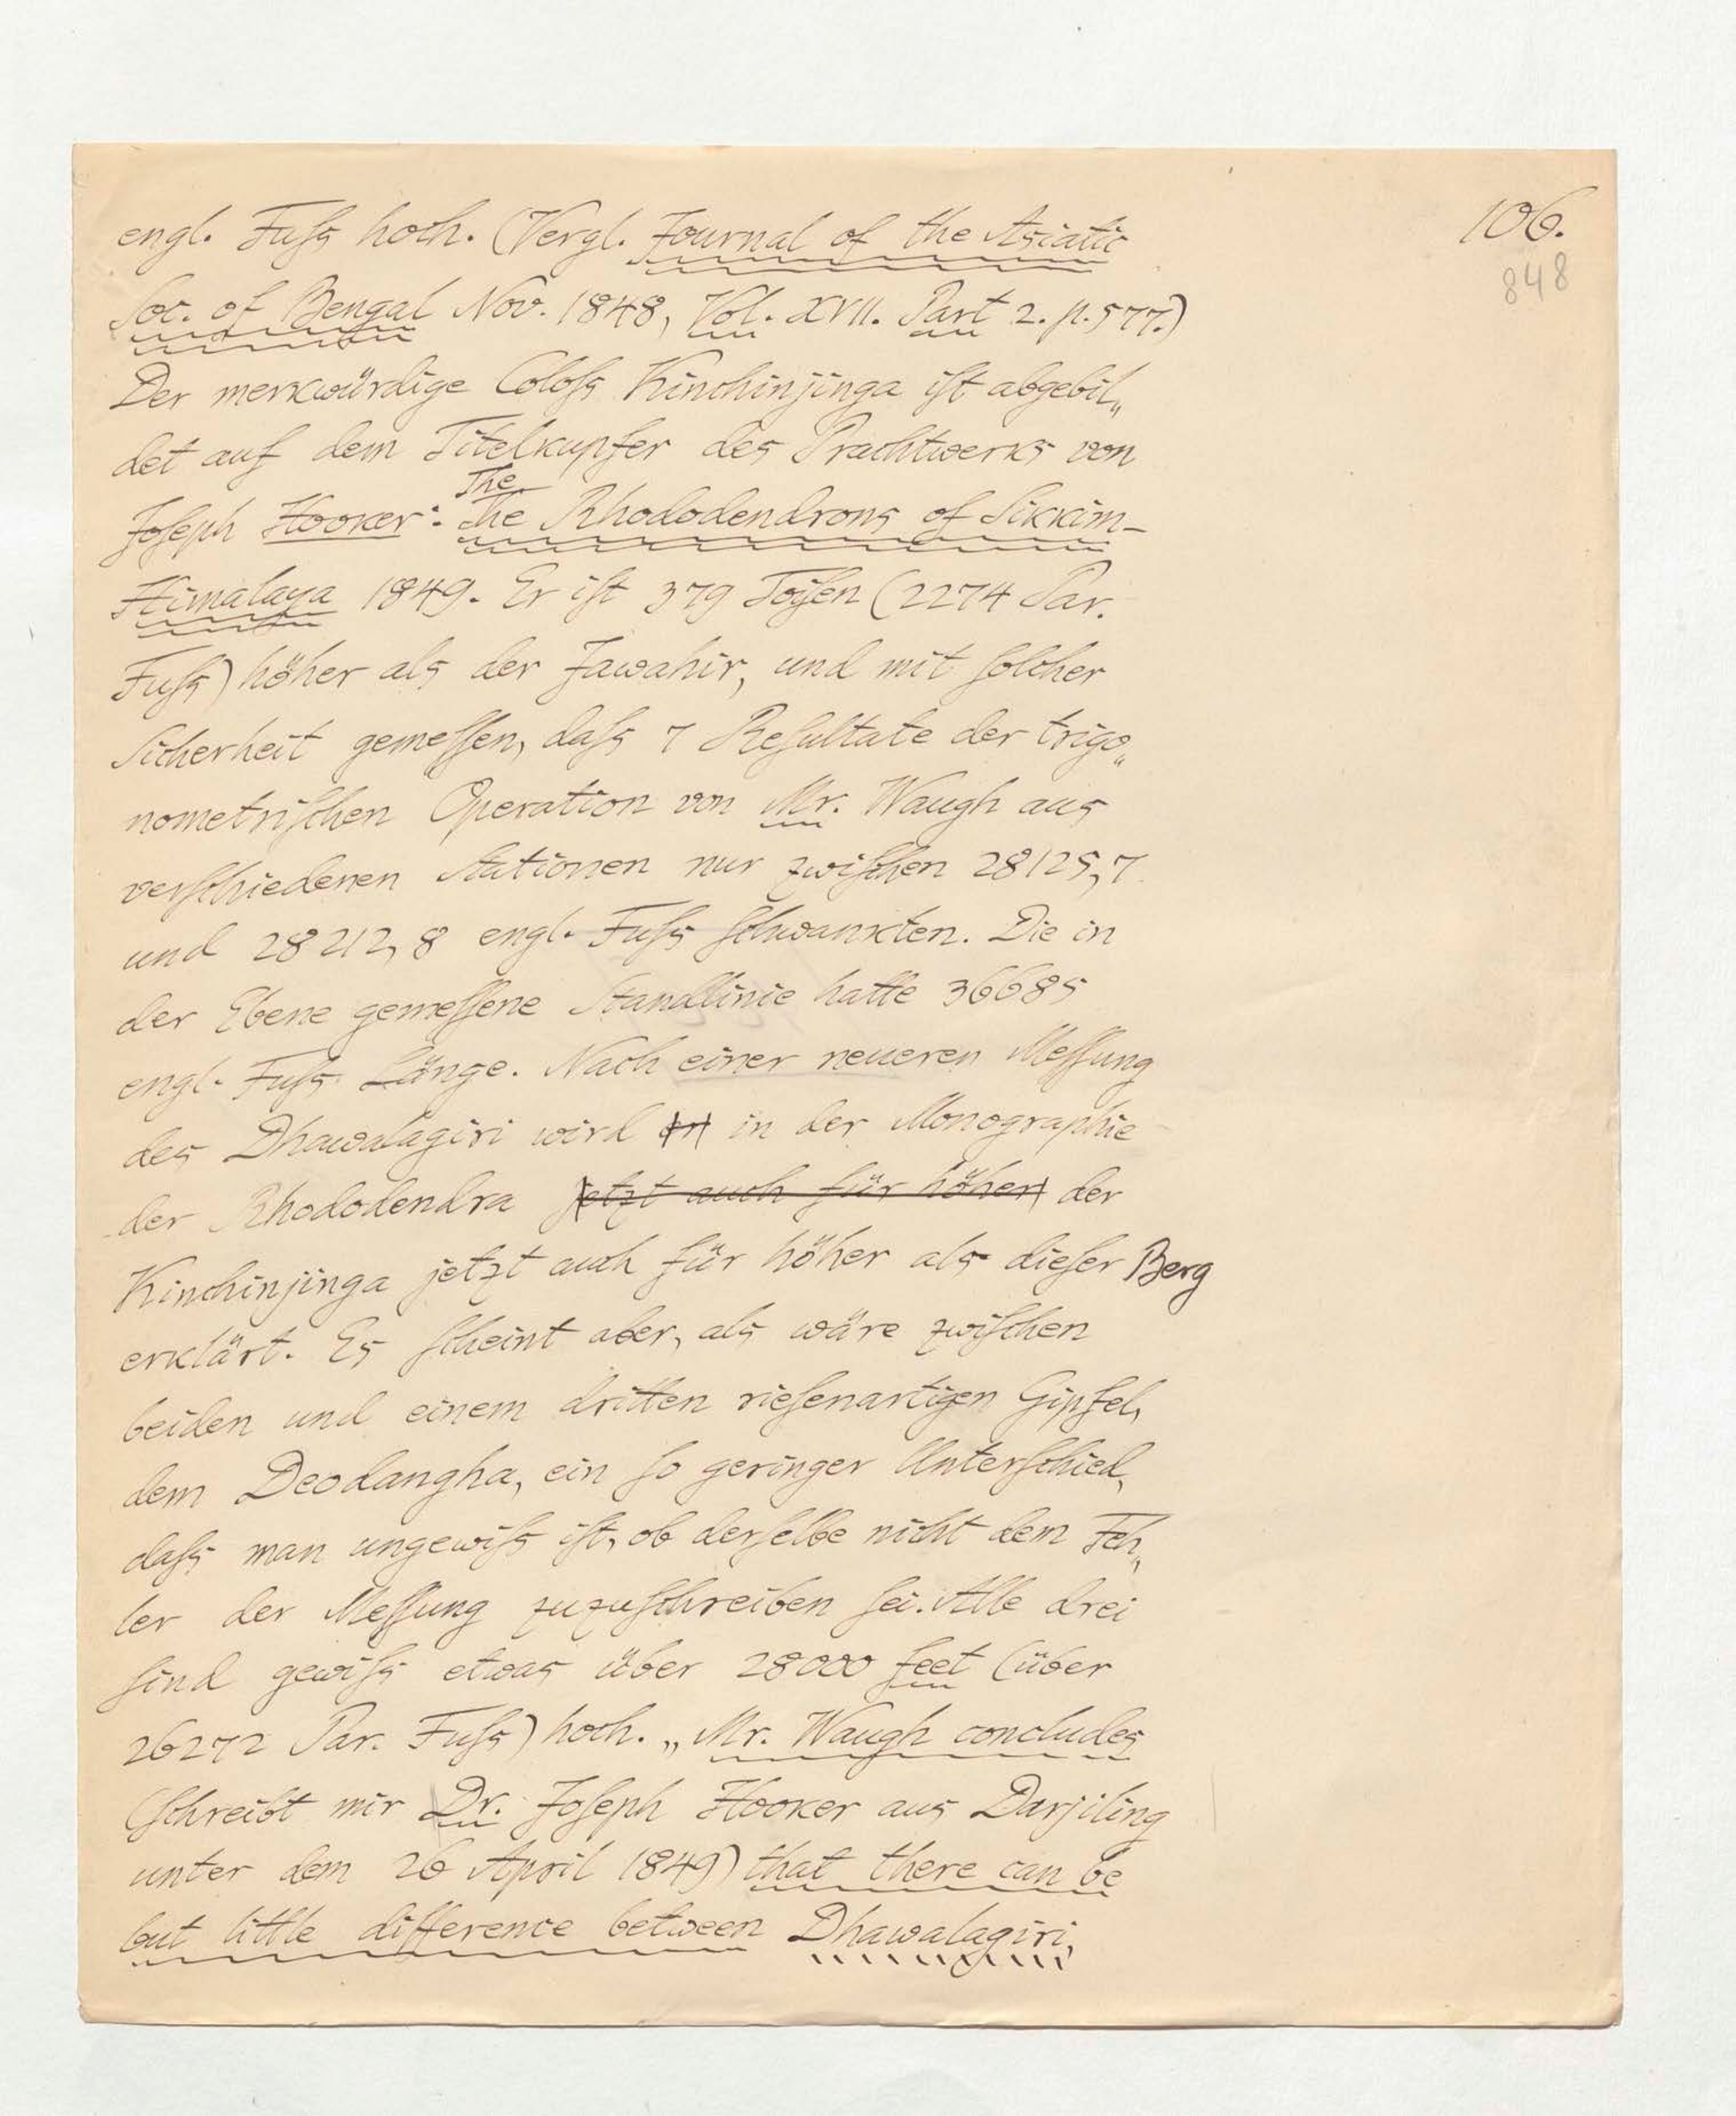 106.
848
engl. Fuſs hoch. (Vergl. Journal of the Asiatic
Soc. of Bengal Nov. 1848, Vol. XVII. Part 2. p. 577.)
Der merkwürdige Coloſs Kinchinjinga iſt abgebil„
det auf dem Titelkupfer des Prachtwerks von
The
Joſeph Hooker: The Rhododendrons of Sikkim-
Himalaya 1849. Er iſt 379 Toiſen (2274 Par.
Fuſs) höher als der Jawahir, und mit ſolcher
Sicherheit gemeſſen, daſs 7 Reſultate der trigo„
nometriſchen Operation von Mr. Waugh aus
verſchiedenen Stationen nur zwiſchen 28125,7
und 28212,8 engl. Fuſs ſchwankten. Die in
der Ebene gemeſſene Standlinie hatte 36685
engl. Fuſs Länge. Nach einer neueren Meſſung
des Dhawalagiri wird in der Monographie
der Rhododendra jetzt auch für höher der
Kinchinjinga jetzt auch für höher als dieſer Berg
erklärt. Es ſcheint aber, als wäre zwiſchen
beiden und einem dritten rieſenartigen Gipfel,
dem Deodangha, ein ſo geringer Unterſchied,
daſs man ungewiſs iſt, ob derſelbe nicht dem Feh„
ler der Meſſung zuzuſchreiben ſei. Alle drei
ſind gewiſs etwas über 28000 feet (über
26272 Par. Fuſs) hoch. „Mr. Waugh concludes
(ſchreibt mir Dr. Joſeph Hooker aus Darjiling
unter dem 26 April 1849) that there can be
but little difference between Dhawalagiri,